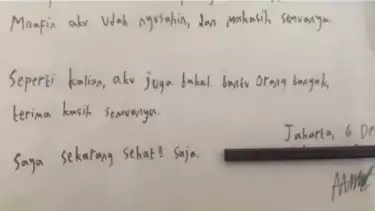 Maafin aku udah nyusahin, dan makasih semuanya.
Seperti kalian, aku juga bakal bantu orang banyak,
terima kasih semuanya.
Saya sekarang sehat² saja.
Jakarta, 6 De